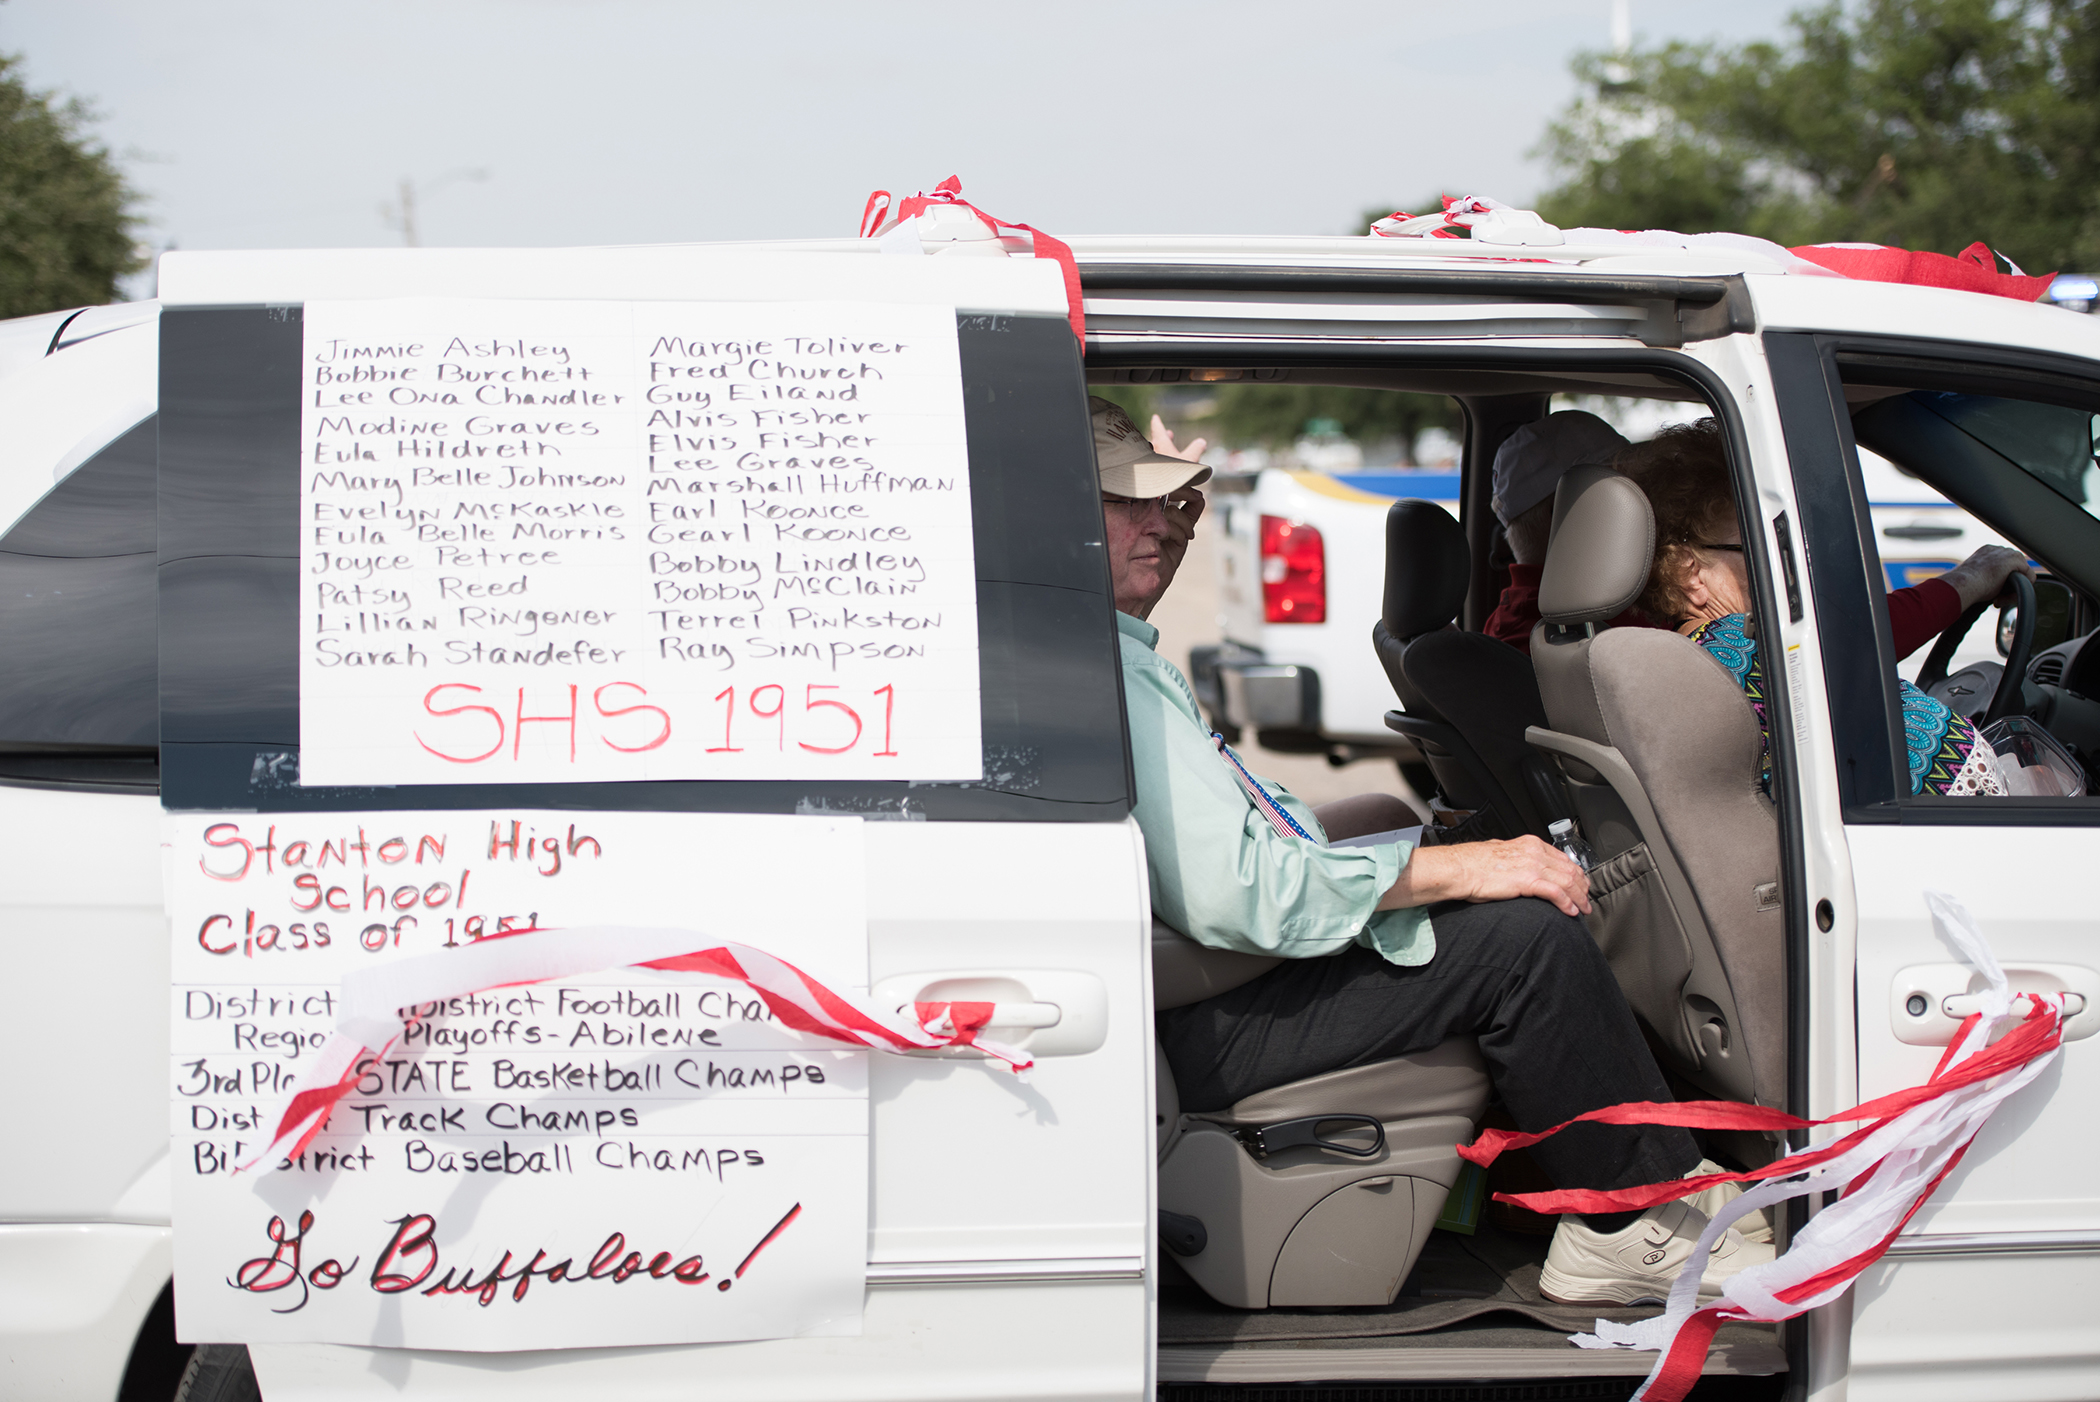 Jimmie Ashley
Bobbie Burchett
Lee Ona Chandler
Modine Graves
Eula Hildreth
Mary Belle Johnson
Evelyn McKaskle
Eula Belle Morris
Joyce Petree
Patsy Reed
Lillian Ringener
Sarah Standefer
Margie Toliver
Fred Church
Guy Eiland
Alvis Fisher
Elvis Fisher
Lee Graves
Marshall Huffman
Earl Koonce
Gearl Koonce
Bobby Lindley
Bobby McClain
Terrel Pinkston
Ray Simpson
SHS 1951
Stanton High
School
Class of 1951
District District Football
Playoffs-Abilene
3rd STATE Basketball Champs
Track Champs
Baseball Champs
Go Buffaloes!